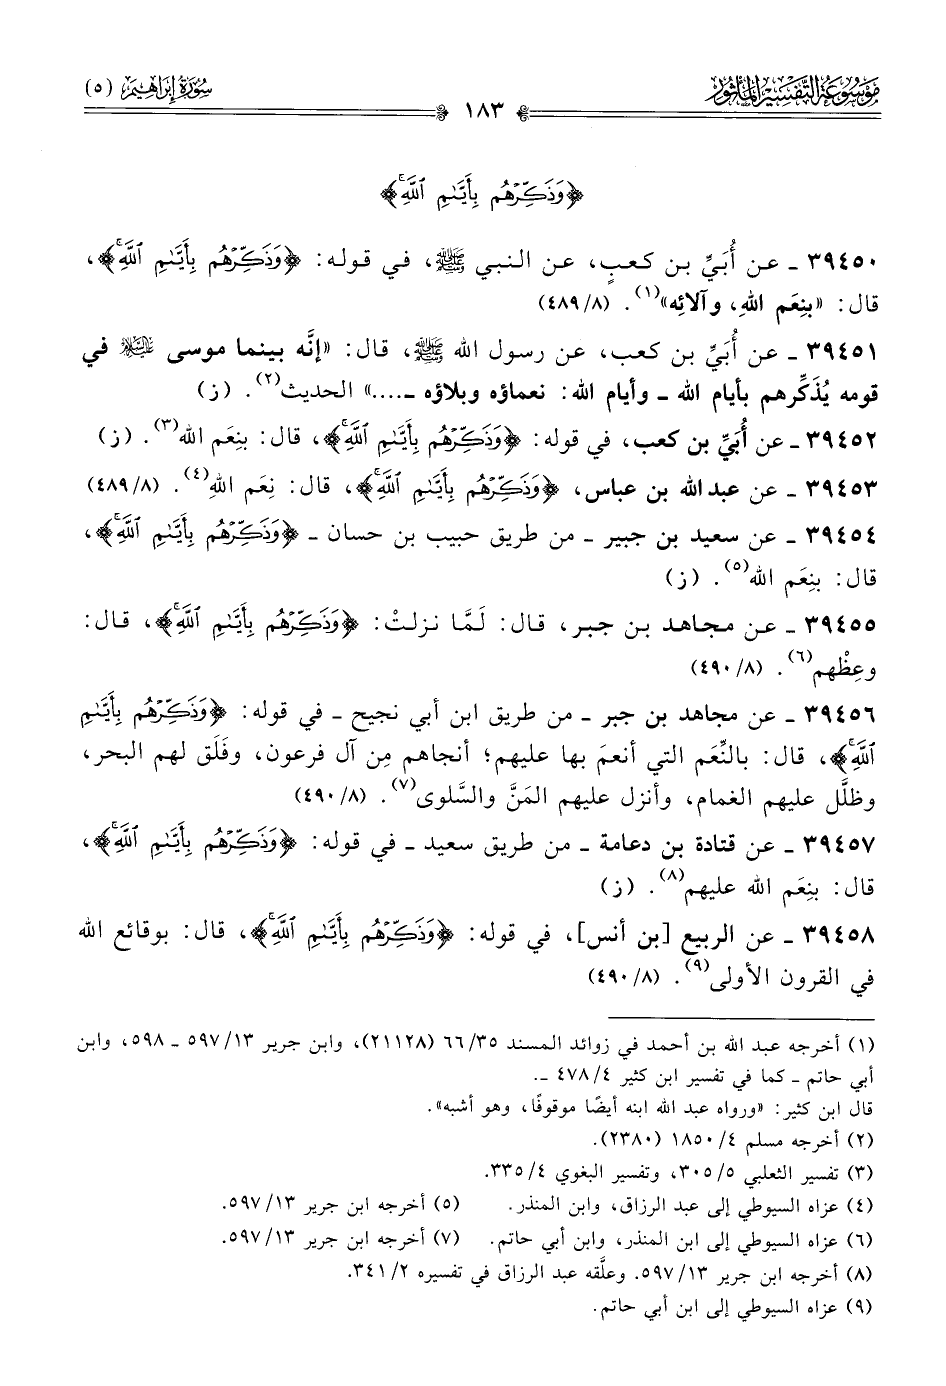 موسوعة التفسير المأثور
سورة إبراهيم (٥)
١٨٣
﴿وَذَكِّرْهُم بِأَيَّىٰمِ ٱللَّهِۚ﴾
٣٩٤٥٠ ـ عن أُبَيِّ بن كعبٍ، عن النبي ﷺ، في قوله: ﴿وَذَكِّرْهُم بِأَيَّىٰمِ ٱللَّهِۚ﴾،
قال: «بنِعَم اللهِ، وآلائِه»(١). (٤٨٩/٨)
٣٩٤٥١ ـ عن أُبَيِّ بن كعب، عن رسول الله ﷺ، قال: «إنَّه بينما موسى عليه السلام في
قومه يُذَكِّرهم بأيام الله ـ وأيام الله: نعماؤه وبلاؤه ـ....» الحديث(٢). (ز)
٣٩٤٥٢ ـ عن أُبَيِّ بن كعب، في قوله: ﴿وَذَكِّرْهُم بِأَيَّىٰمِ ٱللَّهِۚ﴾، قال: بنِعَم الله(٣). (ز)
٣٩٤٥٣ ـ عن عبد الله بن عباس، ﴿وَذَكِّرْهُم بِأَيَّىٰمِ ٱللَّهِۚ﴾، قال: نِعَم الله(٤). (٤٨٩/٨)
٣٩٤٥٤ ـ عن سعيد بن جبير ـ من طريق حبيب بن حسان ـ ﴿وَذَكِّرْهُم بِأَيَّىٰمِ ٱللَّهِۚ﴾،
قال: بنِعَم الله(٥). (ز)
٣٩٤٥٥ ـ عن مجاهد بن جبر، قال: لَمَّا نزلتْ: ﴿وَذَكِّرْهُم بِأَيَّىٰمِ ٱللَّهِۚ﴾، قال:
وعِظْهم(٦). (٤٩٠/٨)
٣٩٤٥٦ ـ عن مجاهد بن جبر ـ من طريق ابن أبي نجيح ـ في قوله: ﴿وَذَكِّرْهُم بِأَيَّىٰمِ
ٱللَّهِۚ﴾، قال: بالنِّعَم التي أنعمَ بها عليهم؛ أنجاهم مِن آل فرعون، وفَلَق لهم البحر،
وظلَّل عليهم الغمام، وأنزل عليهم المَنَّ والسَّلوى(٧). (٤٩٠/٨)
٣٩٤٥٧ ـ عن قتادة بن دعامة ـ من طريق سعيد ـ في قوله: ﴿وَذَكِّرْهُم بِأَيَّىٰمِ ٱللَّهِۚ﴾،
قال: بنِعَم الله عليهم(٨). (ز)
٣٩٤٥٨ ـ عن الربيع [بن أنس]، في قوله: ﴿وَذَكِّرْهُم بِأَيَّىٰمِ ٱللَّهِۚ﴾، قال: بوقائع الله
في القرون الأولى(٩). (٤٩٠/٨)
(١) أخرجه عبد الله بن أحمد في زوائد المسند ٦٦/٣٥ (٢١١٢٨)، وابن جرير ٥٩٧/١٣ ـ ٥٩٨، وابن
أبي حاتم ـ كما في تفسير ابن كثير ٤٧٨/٤ ـ.
قال ابن كثير: «ورواه عبد الله ابنه أيضًا موقوفًا، وهو أشبه».
(٢) أخرجه مسلم ١٨٥٠/٤ (٢٣٨٠).
(٣) تفسير الثعلبي ٣٠٥/٥، وتفسير البغوي ٣٣٥/٤.
(٤) عزاه السيوطي إلى عبد الرزاق، وابن المنذر. (٥) أخرجه ابن جرير ٥٩٧/١٣.
(٦) عزاه السيوطي إلى ابن المنذر، وابن أبي حاتم. (٧) أخرجه ابن جرير ٥٩٧/١٣.
(٨) أخرجه ابن جرير ٥٩٧/١٣. وعلَّقه عبد الرزاق في تفسيره ٣٤١/٢.
(٩) عزاه السيوطي إلى ابن أبي حاتم.